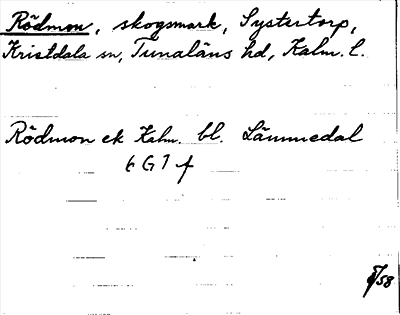 Rödmon, skogsmark, Systertorp,
Kristdala sn, Tunaläns hd, Kalm. l.
Rödmon ek Kalm. bl. Lämmedal
6 G 7 f
/58